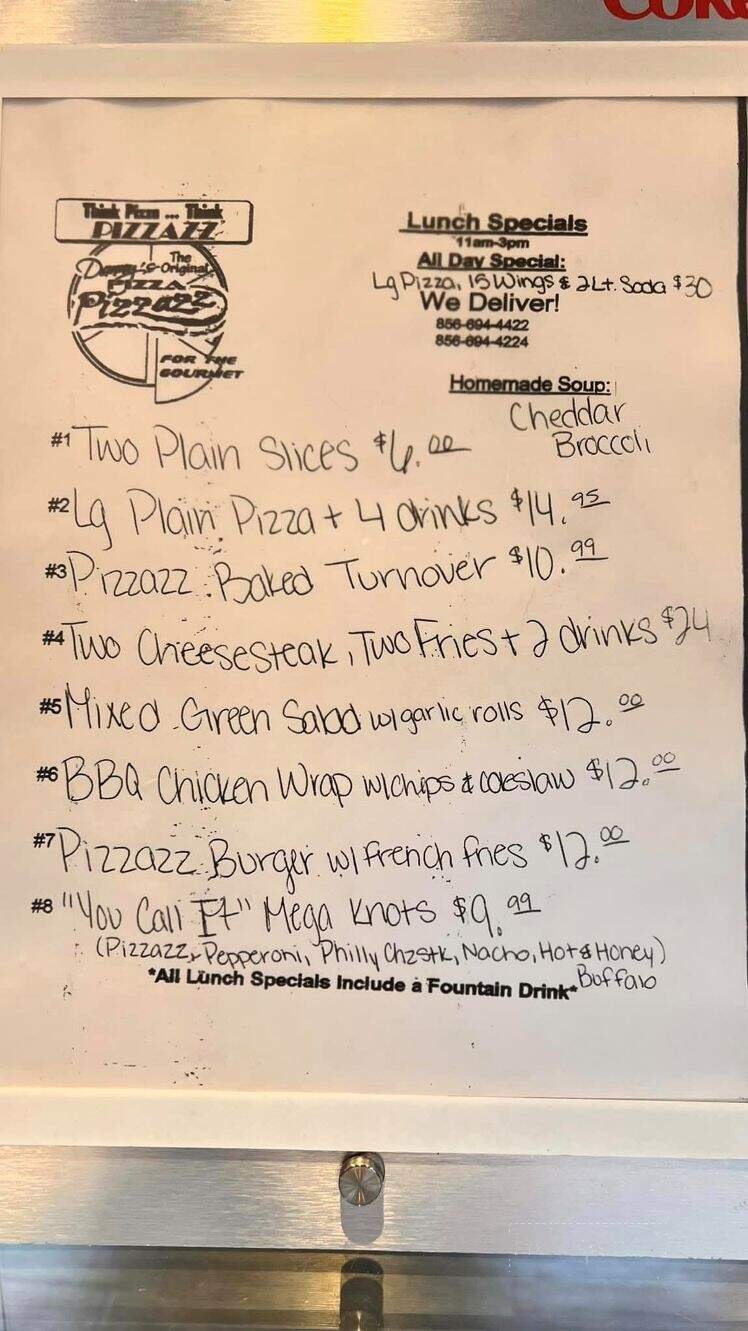 COKE
Think Pizza ... Think
PIZZAZZ
The
Danny's Original
PIZZA
Pizzazz
FOR THE
GOURMET
Lunch Specials
11am-3pm
All Day Special:
Lg Pizza, 15 Wings & 2 Lt. Soda $30
We Deliver!
856-694-4422
856-694-4224
Homemade Soup:
Cheddar
Broccoli
#1 Two Plain Slices $6.00
#2 Lg Plain Pizza + 4 drinks $14.95
#3 Pizzazz Baked Turnover $10.99
#4 Two Cheesesteak, Two Fries + 2 drinks $24
#5 Mixed Green Salad w/garlic rolls $12.00
#6 BBQ Chicken Wrap w/chips & coleslaw $12.00
#7 Pizzazz Burger w/ french fries $12.00
#8 "You Call It" Mega Knots $9.99
(Pizzazz, Pepperoni, Philly Chzstk, Nacho, Hot & Honey)
Buffalo
*All Lunch Specials Include a Fountain Drink*